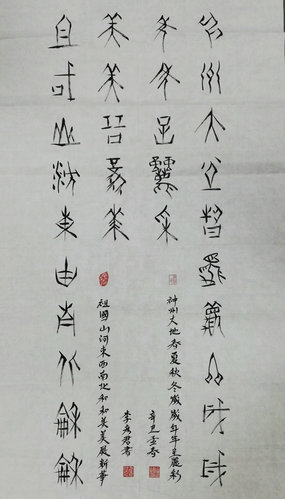 神州大地春夏秋冬歲歲
年年呈麗彩
神州大地春夏秋冬歲歲年年呈麗彩
辛丑孟春
祖國山河東西南北和和
美美展新華
祖國山河東西南北和和美美展新華
李秀君書